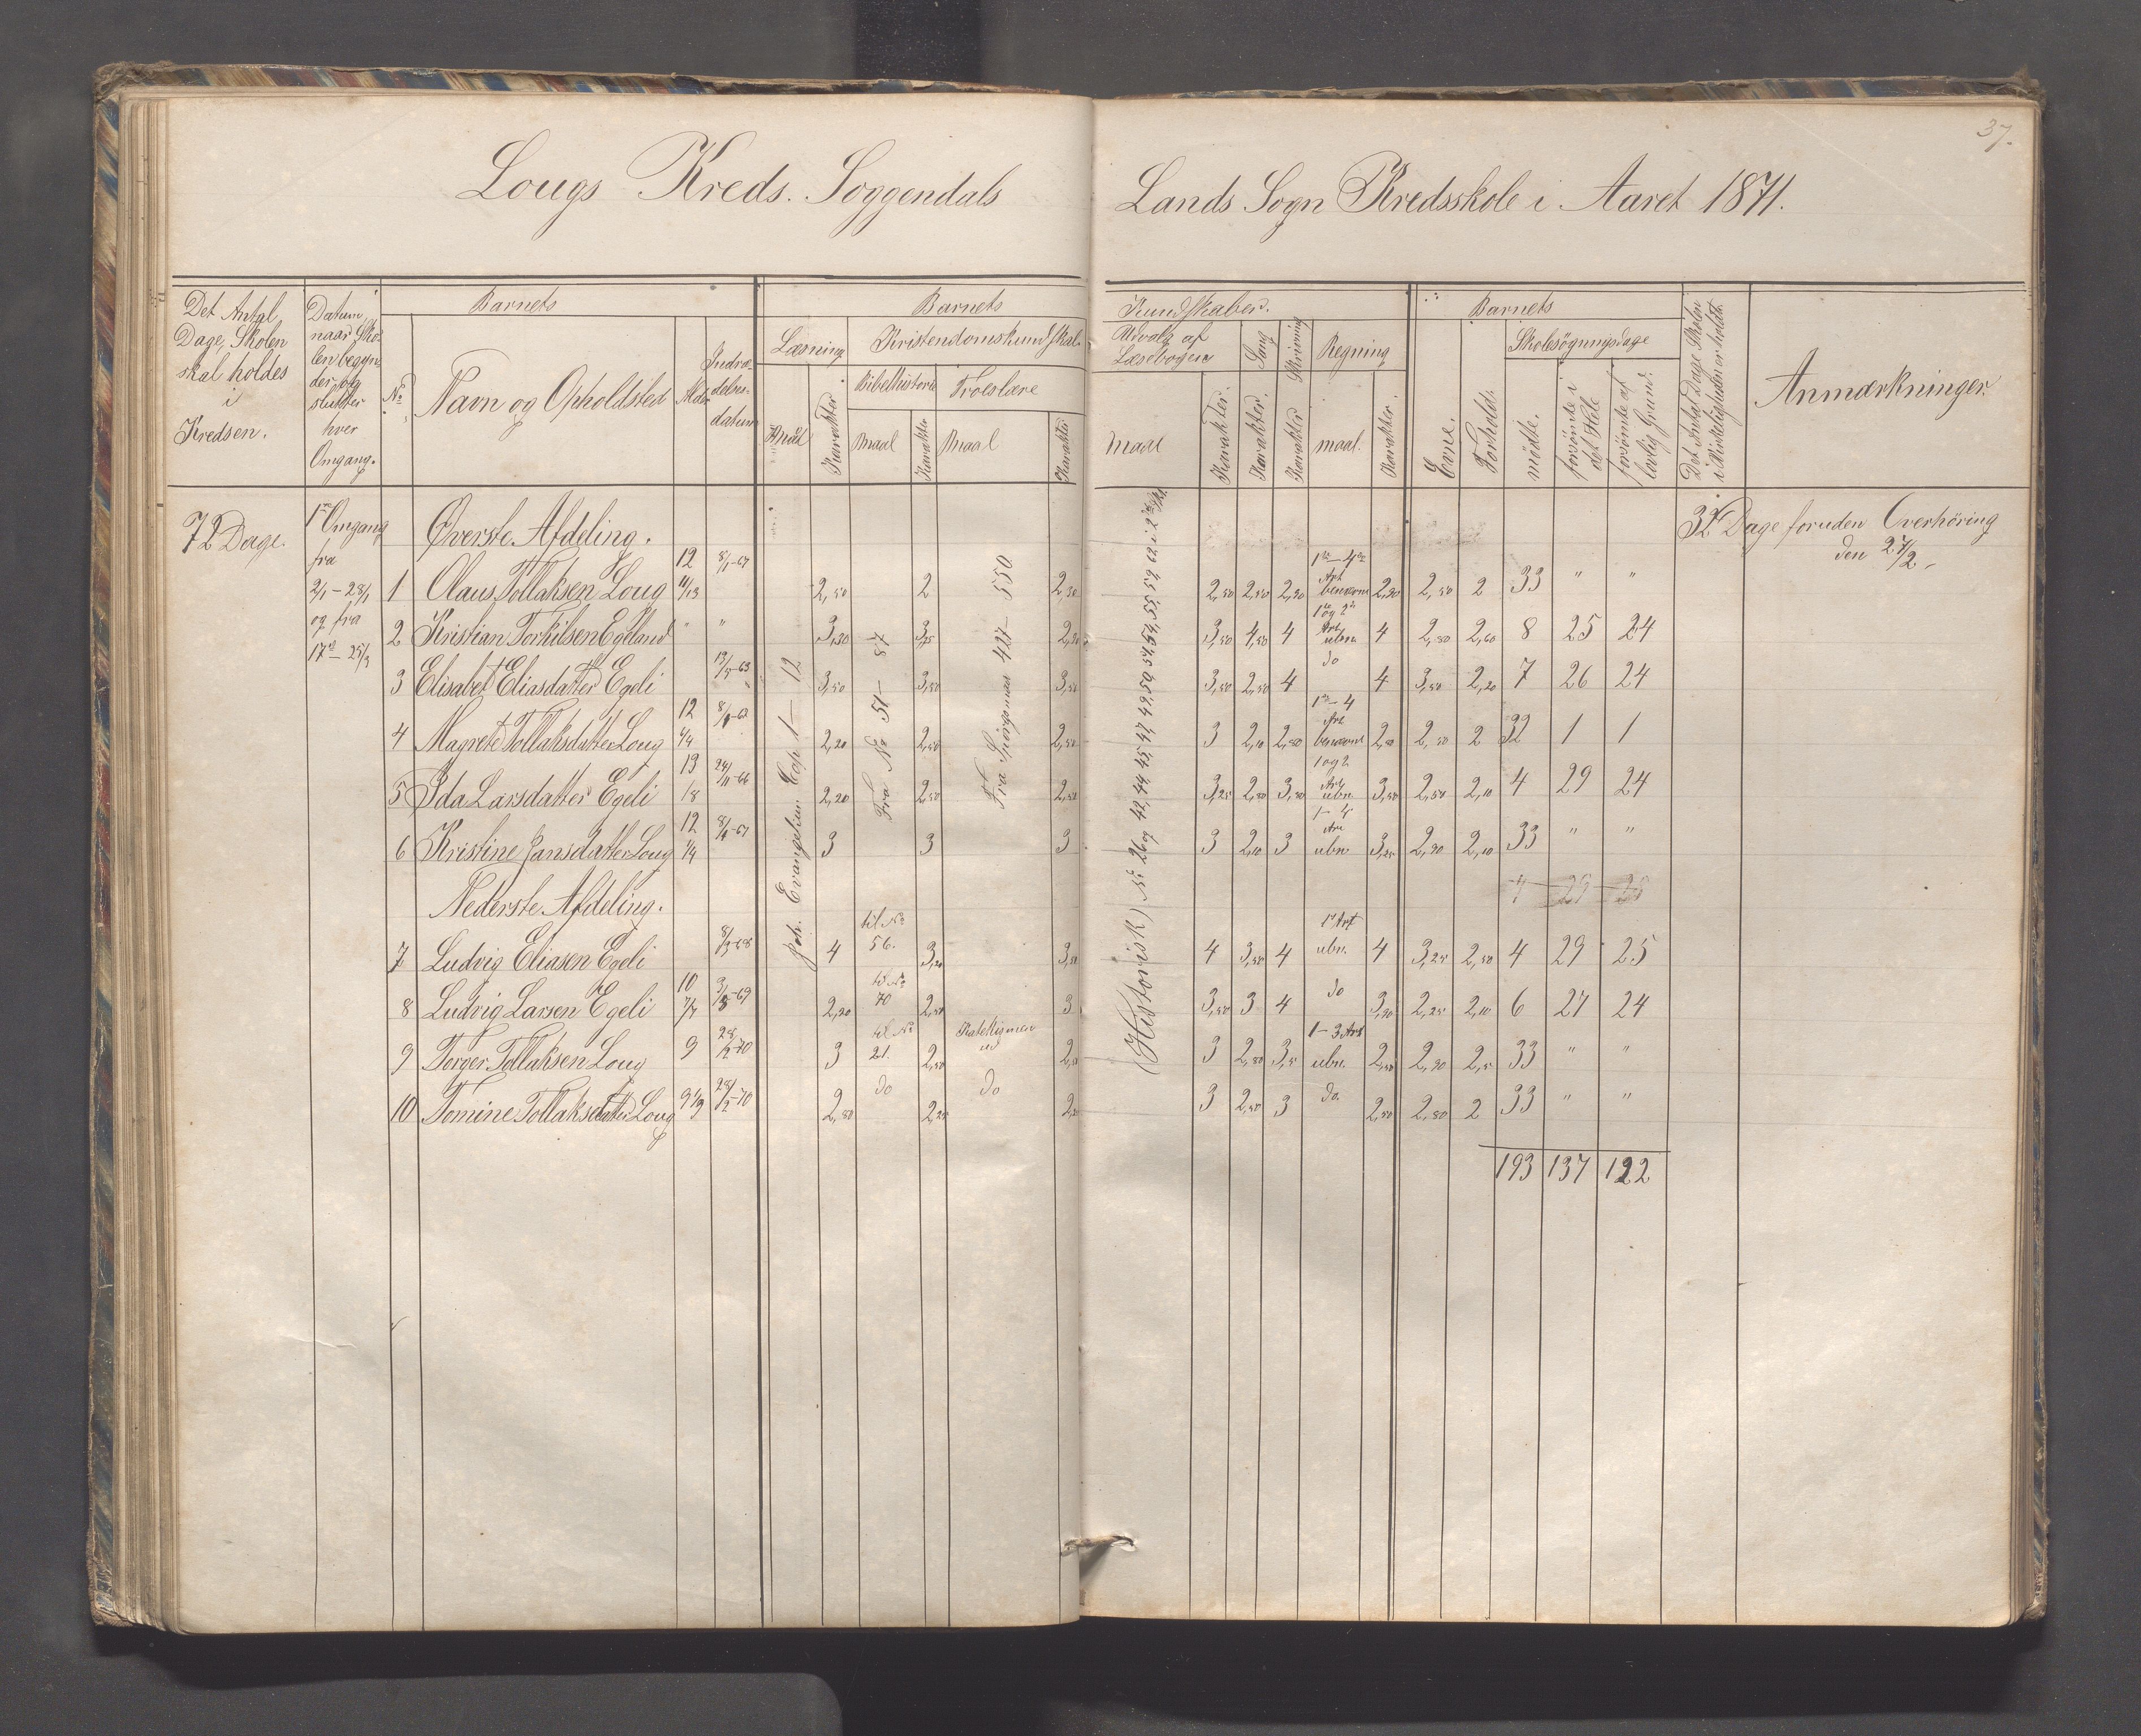 37.
Lougs Kreds. Soggendals Lands Sogn Kredsskole i Aaret 1871.
Det Antal Dage, Skolen skal holdes i Kredsen.
Datum naar Skolen begynder og slutter hver Omgang.
Barnets
No
Navn og Opholdsted
Alder
Indtrædelsesdatum
Barnets Kundskaber.
Læsning
Maal
Karakter
Kristendomskundskab
Bibelhistorie
Maal
Karakter
Troeslære
Maal
Karakter
Udvalg af Læsebogen
Maal
Karakter.
Sang
Karakter.
Skrivning
Karakter
Regning
maal.
Karakter.
Barnets
Evne.
Forhold.
Skolesøgningsdage
mødte.
forsømte i det Hele
forsømte af lovlig Grund.
Det Antal Dage Skolen i Virkeligheden er holdt.
Anmærkninger.
72 Dage.
1ste Omgang
fra
2/1 – 28/1
og fra
17 – 25/3
Joh. Evangelium Cap 1 – 12
Fra No 51 – 87
Fra Spörgsmaal 427 – 550
(Historisk) No 26 og 42, 44, 45, 47, 49, 50
Øverste Afdeling.
32 Dage foruden Overhøring
den 27/2
1 Olaus Tollaksen Loug 12 11/13 8/1-67 2,50 2 2,30 2,50 2,50 2,30 1ste – 4de Art benævnt 2,30 2,50 2 33 " "
2 Kristian Torkilsen Egeland " " 3,30 3,25 2,30 3,50 4,50 4 1 og 2 Art ubn. 4 2,50 2,60 8 25 24
3 Elisabet Eliasdatter Egeli 3,50 3,50 3,50 3,50 2,50 4 do 4 3,50 2,20 7 26 24
4 Magrete Tollaksdatter Loug 12 2,20 2,50 2,50 3 2,10 2,50 1ste – 4 Art benævnt 2,50 2,50 2 32 1 1
5 Ida Larsdatter Egeli 13 1/8 24/11-66 2,20 2,50 2,50 3,25 2,50 3,50 1 og 2 Art ubn. 3,50 2,50 2,10 4 29 24
6 Kristine Jansdatter Loug 12 1/4 3 3 3 3 2,10 3 1 – 4 Art ubn. 3,25 2,30 2,10 33 " "
Nederste Afdeling.
4 29 25
7 Ludvig Eliasen Egeli 8/3-68 4 til No 56. 3,20 3,50 4 3,50 4 1 Art ubn. 4 3,25 2,50 4 29 25
8 Ludvig Larsen Egeli 10 2,20 til No 70 2,50 3 3,50 3 4 do 3,30 2,25 2,10 6 27 24
9 Torger Tollaksen Loug 9 28/2-70 3 til No 21. 2,50 Katekismen ud 3 2,50 3,5 1 – 3 Art ubn. 2,50 2,30 2,5 33 " "
10 Tomine Tollaksdatter Loug 9 1/2 28/2-70 2,50 do 2,25 do 3 2,50 3 do. 2,50 2,50 2 33 " "
193 137 122